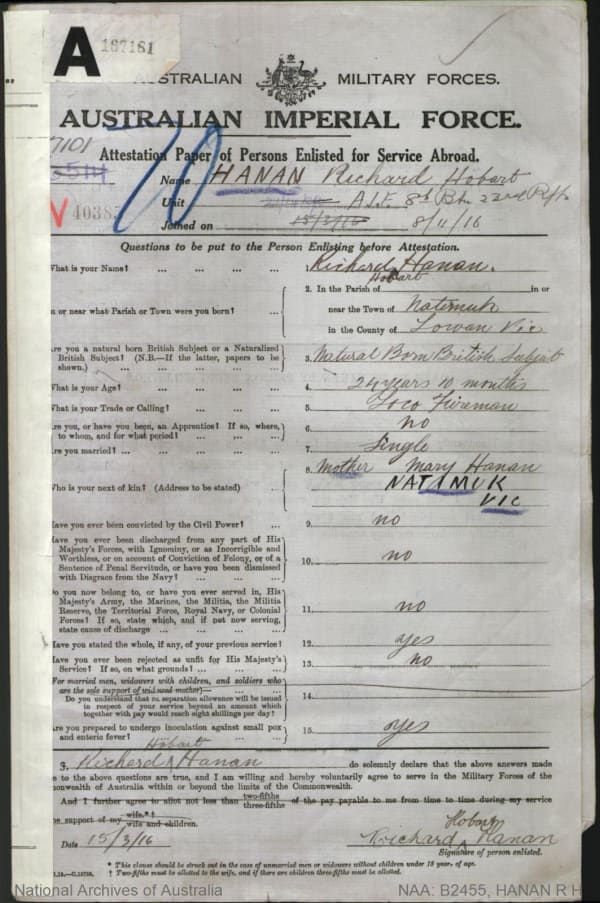 A 187161
AUSTRALIAN MILITARY FORCES.
AUSTRALIAN IMPERIAL FORCE.
7101
Attestation Paper of Persons Enlisted for Service Abroad.
Name HANAN Richard Hobart
Unit A.I.F. 8th Bn 22nd Rfts
V 40385
Joined on 15/3/16 8/11/16
Questions to be put to the Person Enlisting before Attestation.
What is your Name? ... ... ... ... 1. Richard Hobart Hanan.
2. In the Parish of in or
In or near what Parish or Town were you born? ... near the Town of Natimuk
in the County of Lowan Vic
Are you a natural born British Subject or a Naturalized
British Subject? (N.B.—If the latter, papers to be
shown.) ... ... ... ... 3. Natural Born British Subject
What is your Age? ... ... ... ... 4. 24 years 10 months
What is your Trade or Calling? ... ... ... 5. Loco Fireman
Are you, or have you been, an Apprentice? If so, where,
to whom, and for what period? ... ... ... 6. no
Are you married? ... ... ... ... 7. Single
8. Mother Mary Hanan
Who is your next of kin? (Address to be stated) ... NATIMUK
VIC
Have you ever been convicted by the Civil Power? ... 9. no
Have you ever been discharged from any part of His
Majesty's Forces, with Ignominy, or as Incorrigible and
Worthless, or on account of Conviction of Felony, or of a
Sentence of Penal Servitude, or have you been dismissed
with Disgrace from the Navy? ... ... ... 10. no
Do you now belong to, or have you ever served in, His
Majesty's Army, the Marines, the Militia, the Militia
Reserve, the Territorial Force, Royal Navy, or Colonial
Forces? If so, state which, and if not now serving,
state cause of discharge ... ... ... ... 11. no
Have you stated the whole, if any, of your previous service? 12. yes
Have you ever been rejected as unfit for His Majesty's
Service? If so, on what grounds? ... ... ... 13. no
For married men, widowers with children, and soldiers who
are the sole support of widowed mother)—
Do you understand that no separation allowance will be issued
in respect of your service beyond an amount which
together with pay would reach eight shillings per day? 14.
Are you prepared to undergo inoculation against small pox
and enteric fever? ... ... ... ... 15. yes
3. Richard Hobart Hanan do solemnly declare that the above answers made
me to the above questions are true, and I am willing and hereby voluntarily agree to serve in the Military Forces of the
Commonwealth of Australia within or beyond the limits of the Commonwealth.
And I further agree to allot not less than two-fifths three-fifths of the pay payable to me from time to time during my service
the support of my wife.*† wife and children.
Date 15/3/16 Richard Hobart Hanan
Signature of person enlisted.
* This clause should be struck out in the case of unmarried men or widowers without children under 18 years of age.
† Two-fifths must be allotted to the wife, and if there are children three-fifths must be allotted.
National Archives of Australia NAA: B2455, HANAN R H